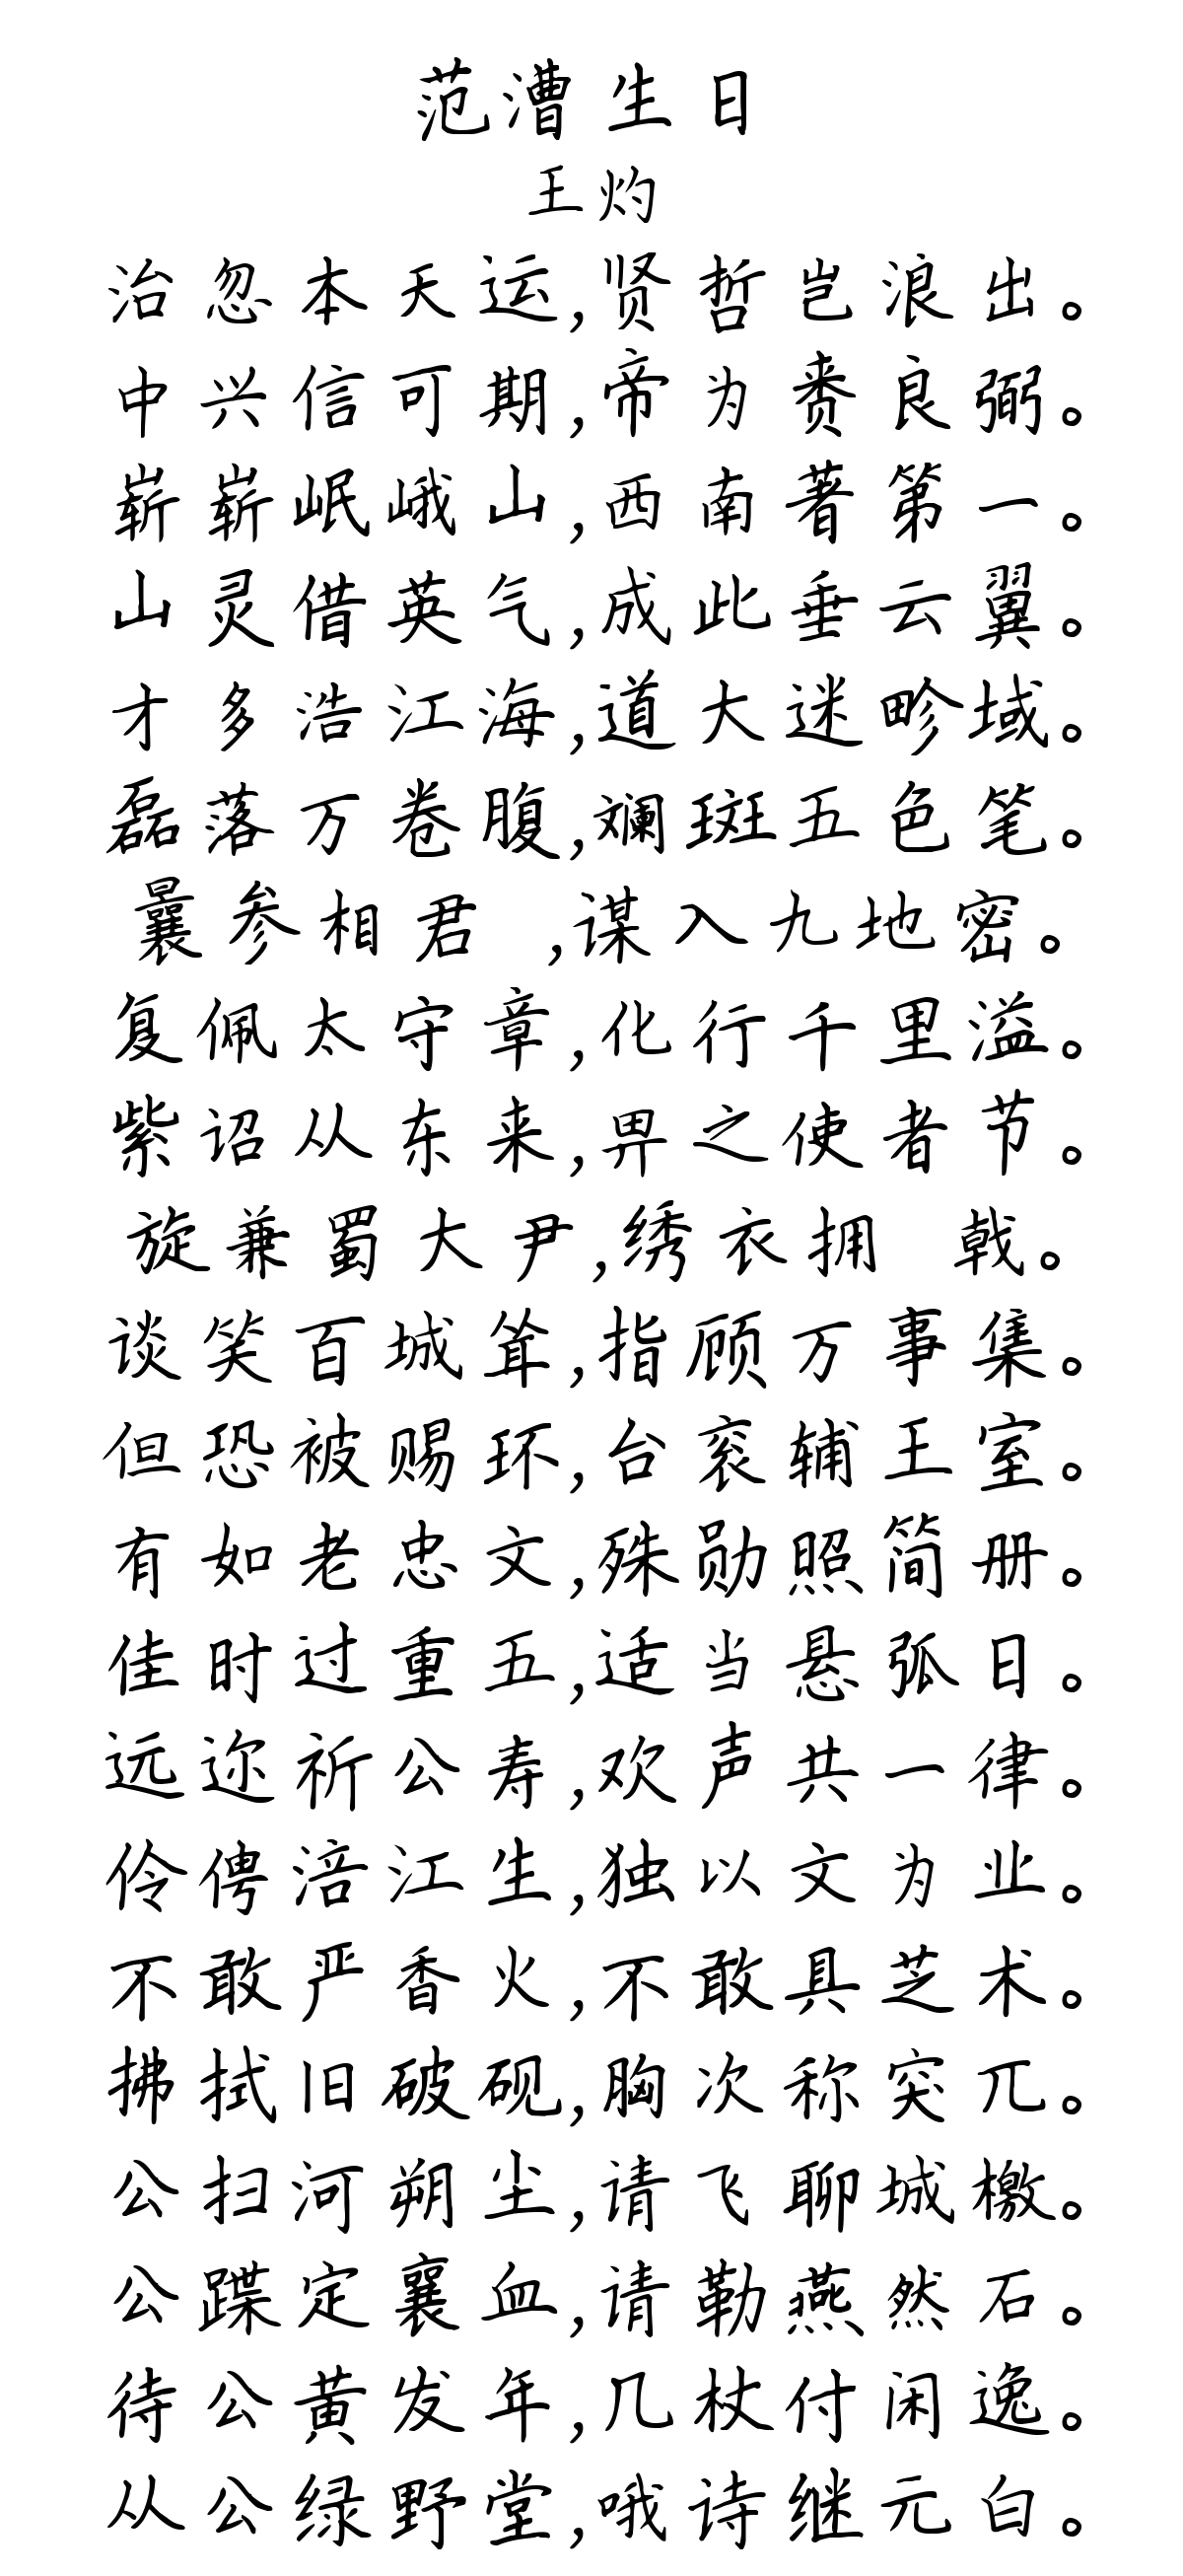 范漕生日
王灼
治忽本天运,贤哲岂浪出。
中兴信可期,帝为赉良弼。
崭崭岷峨山,西南著第一。
山灵借英气,成此垂云翼。
才多浩江海,道大迷畛域。
磊落万卷腹,斓斑五色笔。
曩参相君 ,谋入九地密。
复佩太守章,化行千里溢。
紫诏从东来,畀之使者节。
旋兼蜀大尹,绣衣拥 戟。
谈笑百城耸,指顾万事集。
但恐被赐环,台衮辅王室。
有如老忠文,殊勋照简册。
佳时过重五,适当悬弧日。
远迩祈公寿,欢声共一律。
伶俜涪江生,独以文为业。
不敢严香火,不敢具芝术。
拂拭旧破砚,胸次称突兀。
公扫河朔尘,请飞聊城檄。
公蹀定襄血,请勒燕然石。
待公黄发年,几杖付闲逸。
从公绿野堂,哦诗继元白。